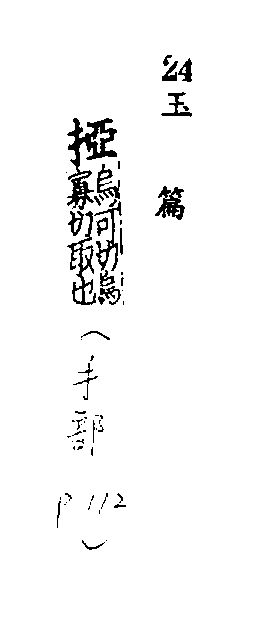 24
玉篇
掗烏可切烏寡切取也
（手部
P 112）